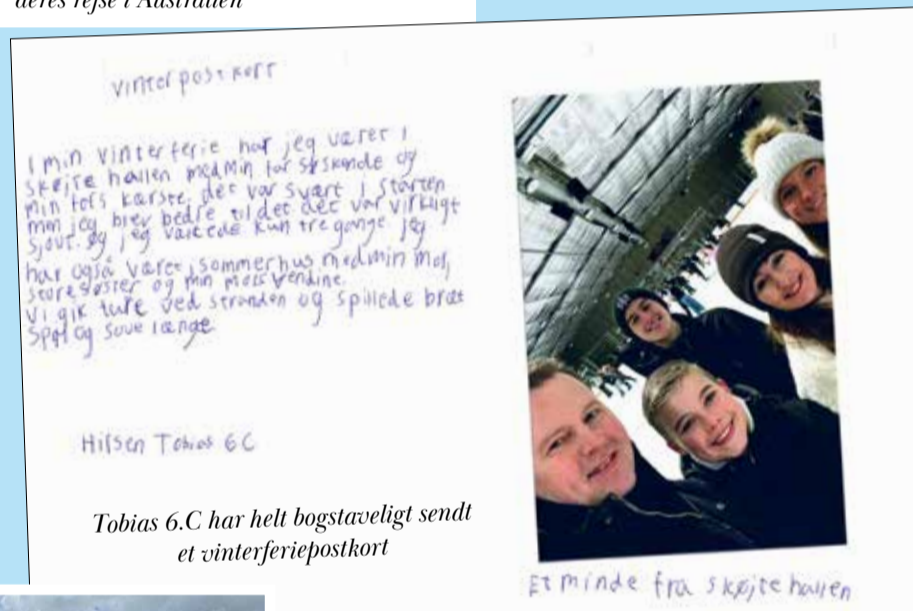 deres rejse i Australien
Vinterpostkort
I min vinterferie har jeg været i
skøjte hallen med min far søskende og
min fars kærste. det var svært i starten
men jeg blev bedre til det det var virkligt
sjovt. og jeg væltede kun tre gange jeg
har også været i sommerhus med min mor,
storesøster og min mors vendine.
Vi gik ture ved stranden og spillede bræt
spil og sove længe
Hilsen Tobias 6C
Tobias 6.C har helt bogstaveligt sendt
et vinterferiepostkort
Et minde fra skøjte hallen